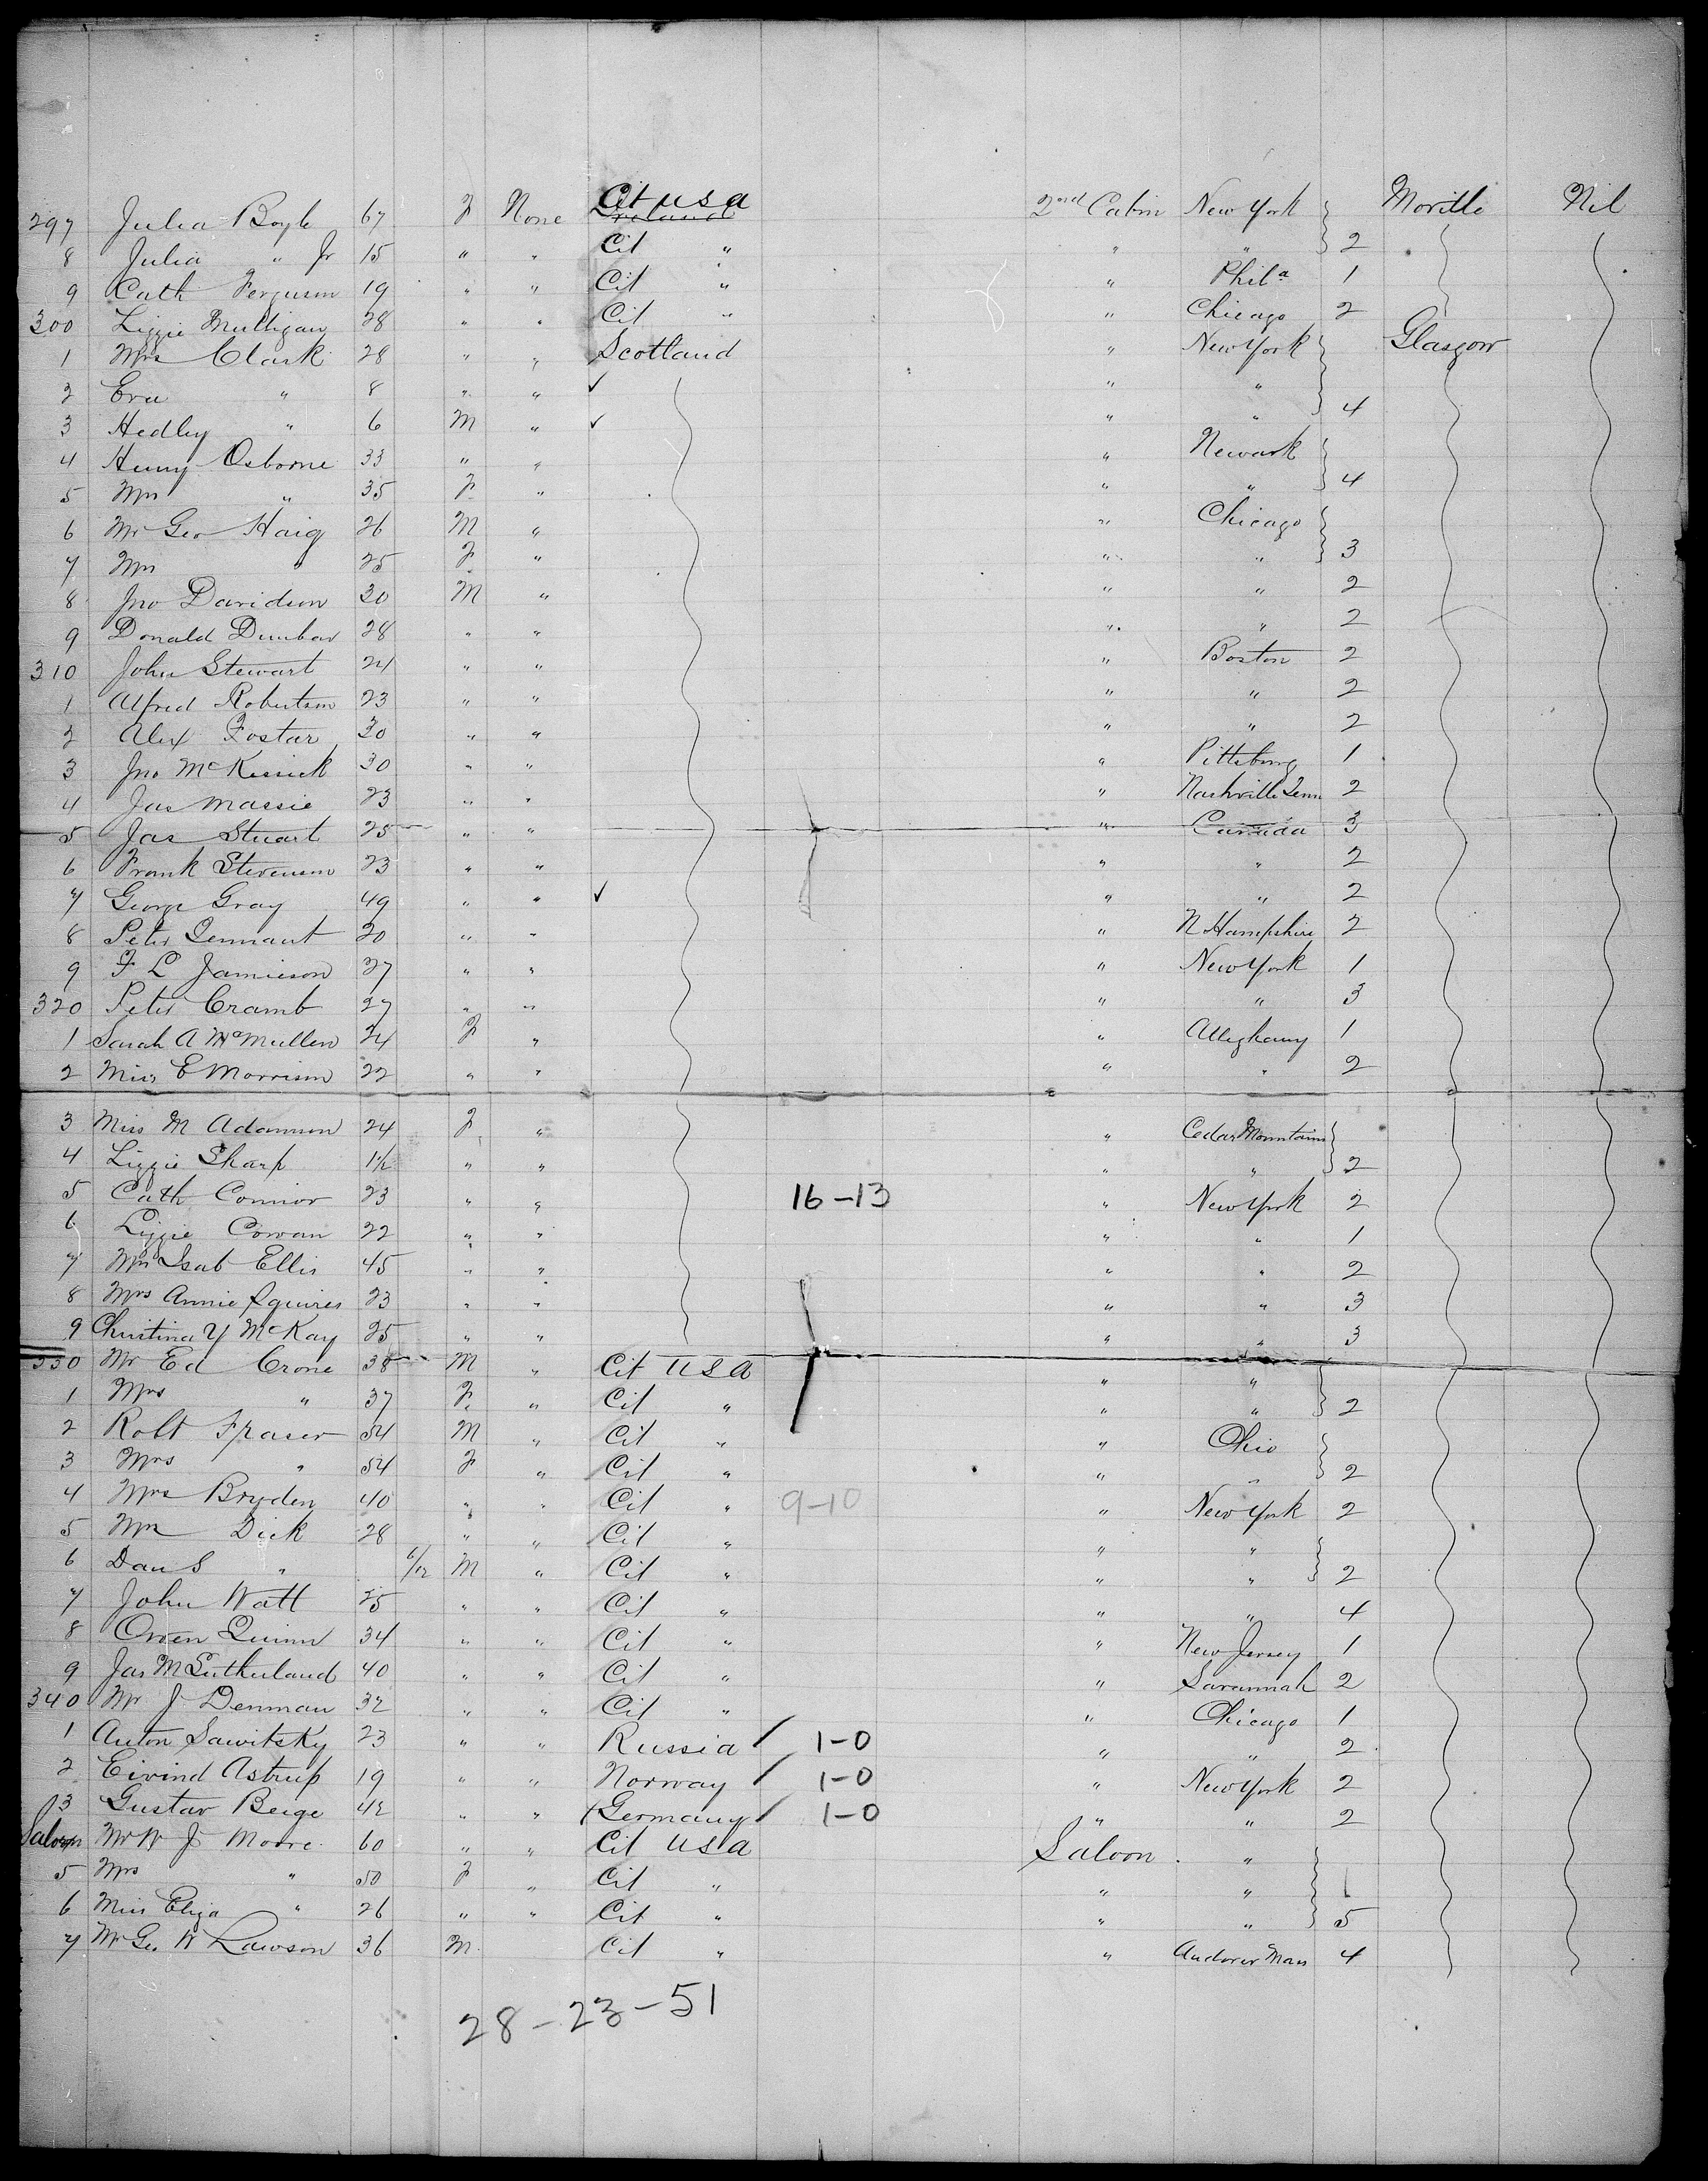 297 Julia Boyle 67 F None Cit USA Ireland 2nd Cabin New York Moville Nil
8 Julia " Jr 15 " " Cit " " " 2
9 Cath Ferguson 19 " " Cit " " Phila 1
300 Lizzie Mulligan 28 " " Cit " " Chicago 2
1 Mrs Clark 28 " " Scotland " New York Glasgow
2 Eva " 8 " " ✓ " "
3 Hedley " 6 M " ✓ " " 4
4 Henry Osborne 33 " " " Newark
5 Mrs " 35 F " " " 4
6 Mr Geo Haig 26 M " " Chicago
7 Mrs " 25 F " " " 3
8 Jno Davidson 30 M " " " 2
9 Donald Dunbar 28 " " " " 2
310 John Stewart 24 " " " Boston 2
1 Alfred Robertson 23 " " " " 2
2 Alex Fostar 30 " " " " 2
3 Jno McKissick 30 " " " Pittsburg 1
4 Jas Massie 23 " " " Nashville Tenn 2
5 Jas Stuart 25 " " " Canada 3
6 Frank Stevenson 23 " " " " 2
7 George Gray 49 " " ✓ " " 2
8 Peter Lennant 20 " " " N Hampshire 2
9 F L Jamieson 27 " " " New York 1
320 Peter Cramb 27 " " " " 3
1 Sarah A McMullen 24 F " " Alleghany 1
2 Miss E Morrison 22 " " " " 2
3 Miss M Adamson 24 F " " Cedar Mountains
4 Lizzie Sharp " " " " 2
5 Cath Connor 23 " " 16-13 " New York 2
6 Lizzie Cowan 22 " " " " 1
7 Mrs Isab Ellis 45 " " " " 2
8 Mrs Annie Squires 23 " " " " 3
9 Christina Y McKay 25 " " " " 3
330 Mr Ed Crone 38 M " Cit USA " "
1 Mrs " 37 F " Cit " " " 2
2 Robt Fraser 54 M " Cit " " Ohio
3 Mrs " 54 F " Cit " " " 2
4 Mrs Bryden 40 " " Cit " 9-10 " New York 2
5 Mrs Dick 28 " " Cit " " "
6 Dan S " 6/12 M " Cit " " " 2
7 John Watt 25 " " Cit " " " 4
8 Owen Quinn 34 " " Cit " " New Jersey 1
9 Jas M Sutherland 40 " " Cit " " Savannah 2
340 Mr J Denman 32 " " Cit " " Chicago 1
1 Anton Sawitsky 23 " " Russia / 1-0 " " 2
2 Eivind Astrup 19 " " Norway / 1-0 " New York 2
3 Gustav Beige 42 " " Germany / 1-0 " " 2
Saloon Mr W J Moore 60 " " Cit USA Saloon "
5 Mrs " 50 F " Cit " " "
6 Miss Eliza " 26 " " Cit " " " 5
7 Mr Geo W Lawson 36 M Cit " " Andover Mass 4
28-23-51